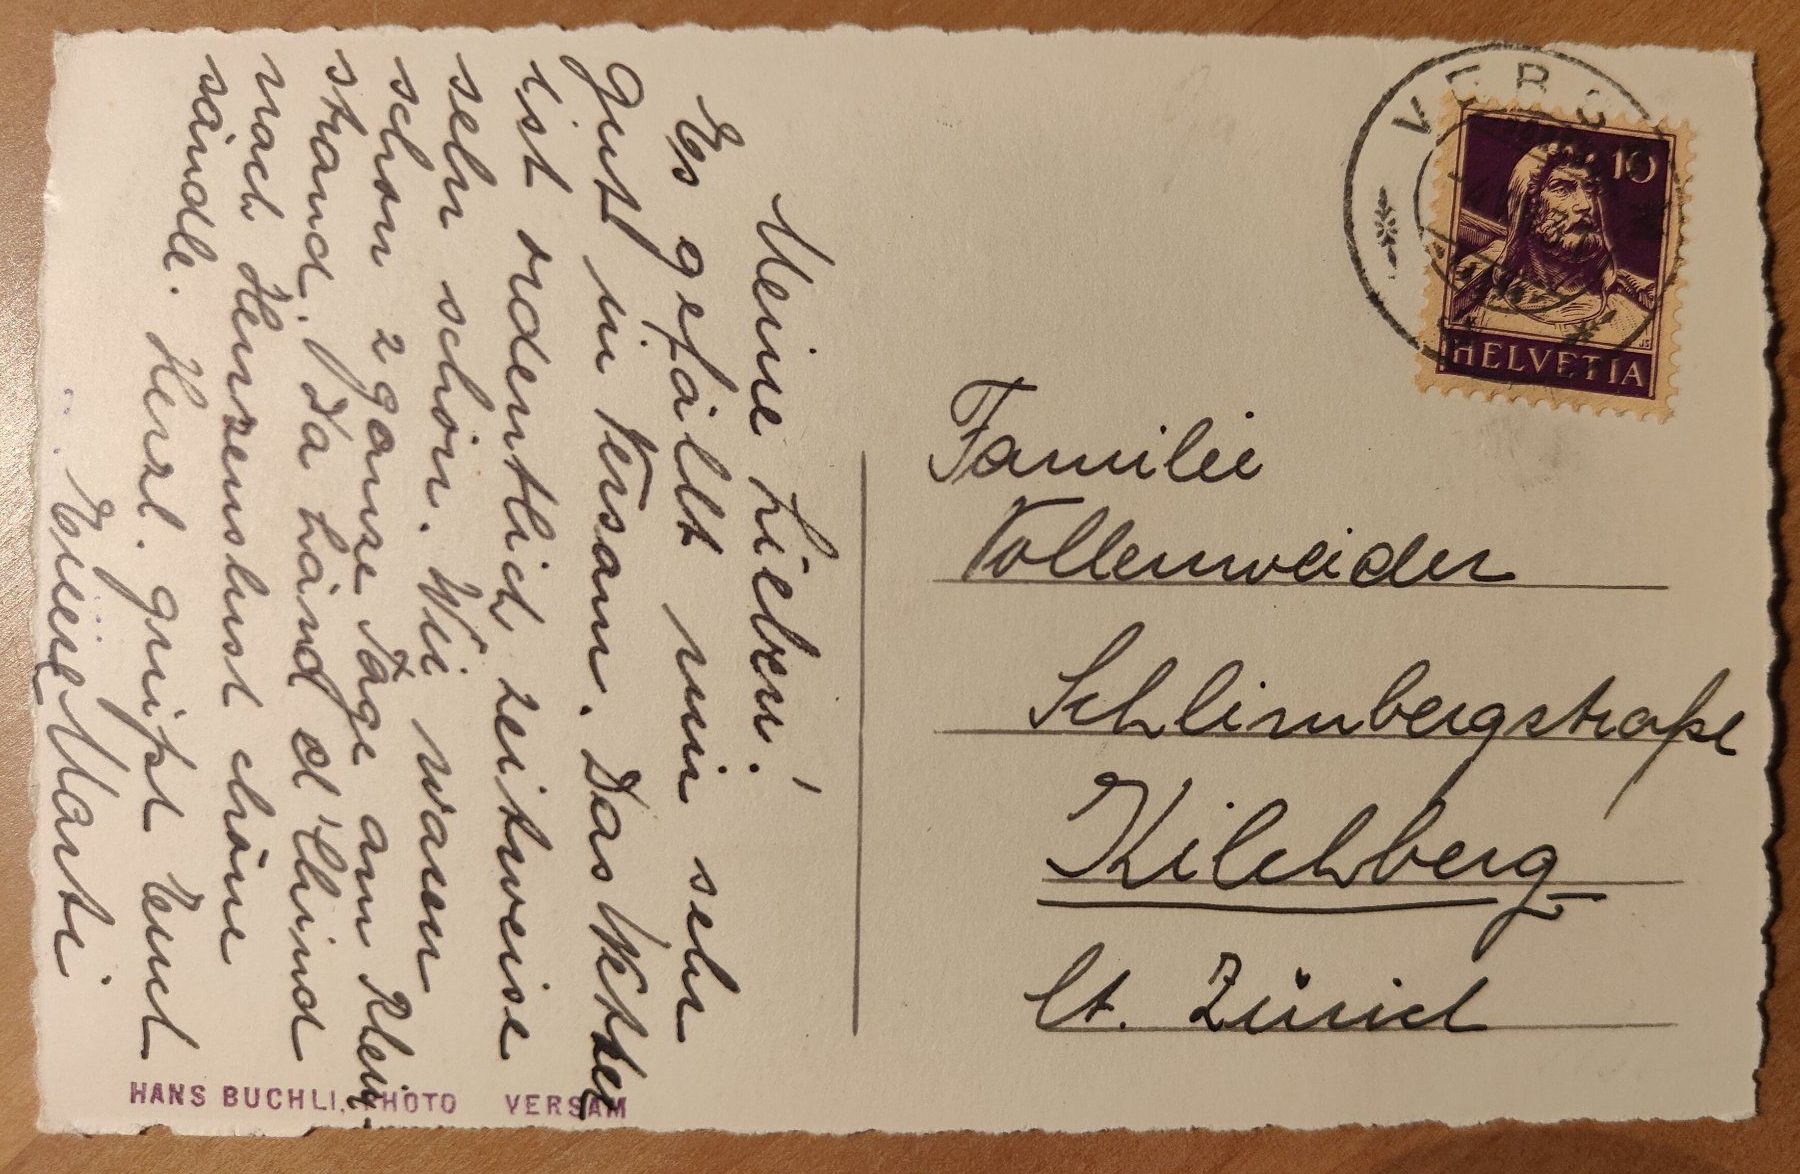 Meine Lieben!
Es gefällt mir sehr
gut in Versam. Das Wetter
ist ordentlich zeitweise
sehr schön. Wir waren
schon 2 ganze Tage am Rhein-
strand. Da händ d'Chind
nach Herzenslust chöne
sändle. Herzl. grüsst Euch
Eueri Marti
Familie
Vollenweider
Schlimbergstraße
Kilchberg
Ct. Zürich
VERS
10
HELVETIA
HANS BUCHLI, PHOTO VERSAM